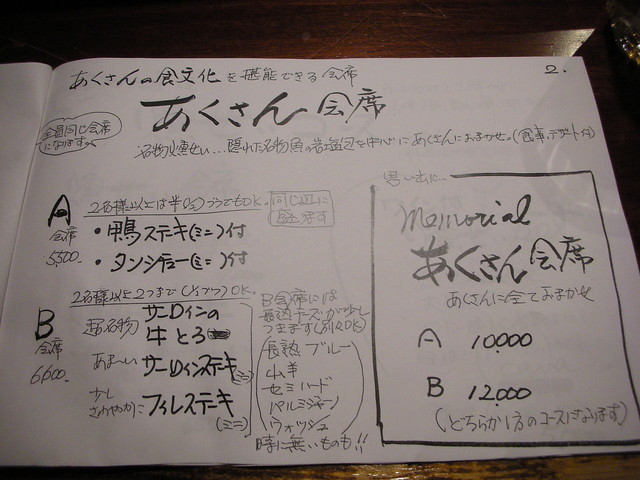 2.
あくさんの食文化を堪能できる会席
あくさん会席
全員同じ会席
になります
名物燻せい…隠れた名物魚の岩塩包を中心にあくさんにおまかせ。(食事、デザート付)
A
会席
5,500.
2名様以上は半々(1/2)づつでもOK.
同じ皿に
盛ます
・鴨ステーキ(ミニ)付
・タンシチュー(ミニ)付
B
会席
6,600.
2名様以上2つまで(1/2づつ)OK.
超名物 サーロインの
牛とろ
あま〜い サーロインステーキ(ミニ)
少し
さわやかに フィレステーキ
(ミニ)
B会席には
長熟チーズが少し
つきます(別くOK)
長熟ブルー
山羊
セミハード
パルミジャーノ
ウォッシュ
時に無いものも!!
思い出に…
Memorial
あくさん会席
あくさんに全ておまかせ
A 10,000
B 12,000
(どちらか1方のコースになります)